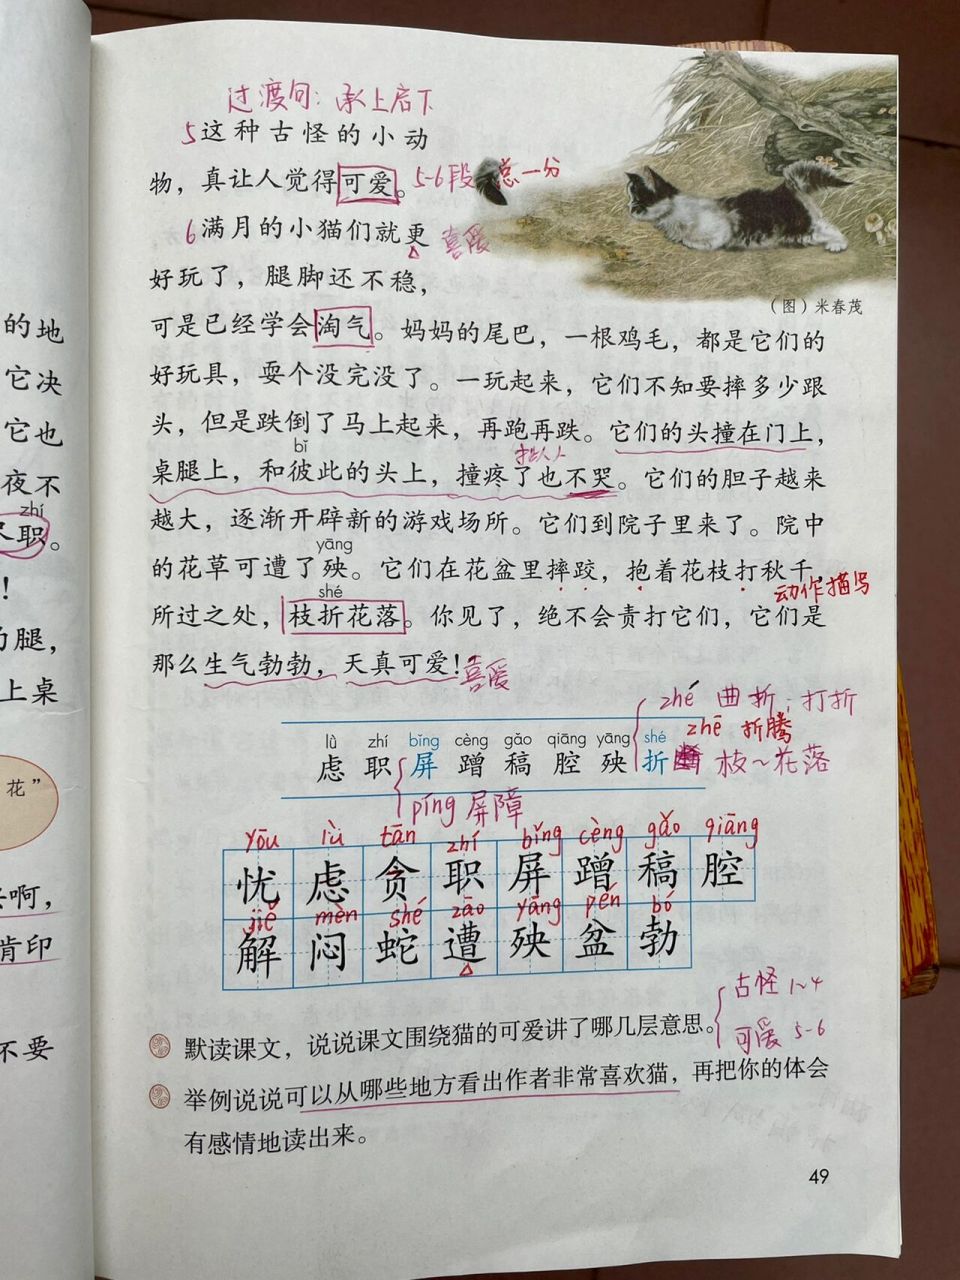 过渡句：承上启下
5这种古怪的小动
物，真让人觉得可爱。5-6段 总-分
6满月的小猫们就更 喜爱
好玩了，腿脚还不稳，
（图）米春茂
可是已经学会淘气。妈妈的尾巴，一根鸡毛，都是它们的
好玩具，耍个没完没了。一玩起来，它们不知要摔多少跟
头，但是跌倒了马上起来，再跑再跌。它们的头撞在门上，
bǐ 拟人
桌腿上，和彼此的头上，撞疼了也不哭。它们的胆子越来
越大，逐渐开辟新的游戏场所。它们到院子里来了。院中
yāng
的花草可遭了殃。它们在花盆里摔跤，抱着花枝打秋千，
shé 动作描写
所过之处，枝折花落。你见了，绝不会责打它们，它们是
那么生气勃勃，天真可爱！喜爱
zhé 曲折；打折
zhē 折腾
lǜ zhí bǐng cèng gǎo qiāng yāng shé
虑 职 屏 蹭 稿 腔 殃 折 枝～花落
píng 屏障
yōu lǜ tān zhí bǐng cèng gǎo qiāng
忧 虑 贪 职 屏 蹭 稿 腔
jiě mèn shé zāo yāng pén bó
解 闷 蛇 遭 殃 盆 勃
古怪 1~4
默读课文，说说课文围绕猫的可爱讲了哪几层意思。
可爱 5-6
举例说说可以从哪些地方看出作者非常喜欢猫，再把你的体会
有感情地读出来。
49
的地
它决
它也
夜不
zhí
职。
！
的腿，
上桌
花”
啊，
肯印
不要